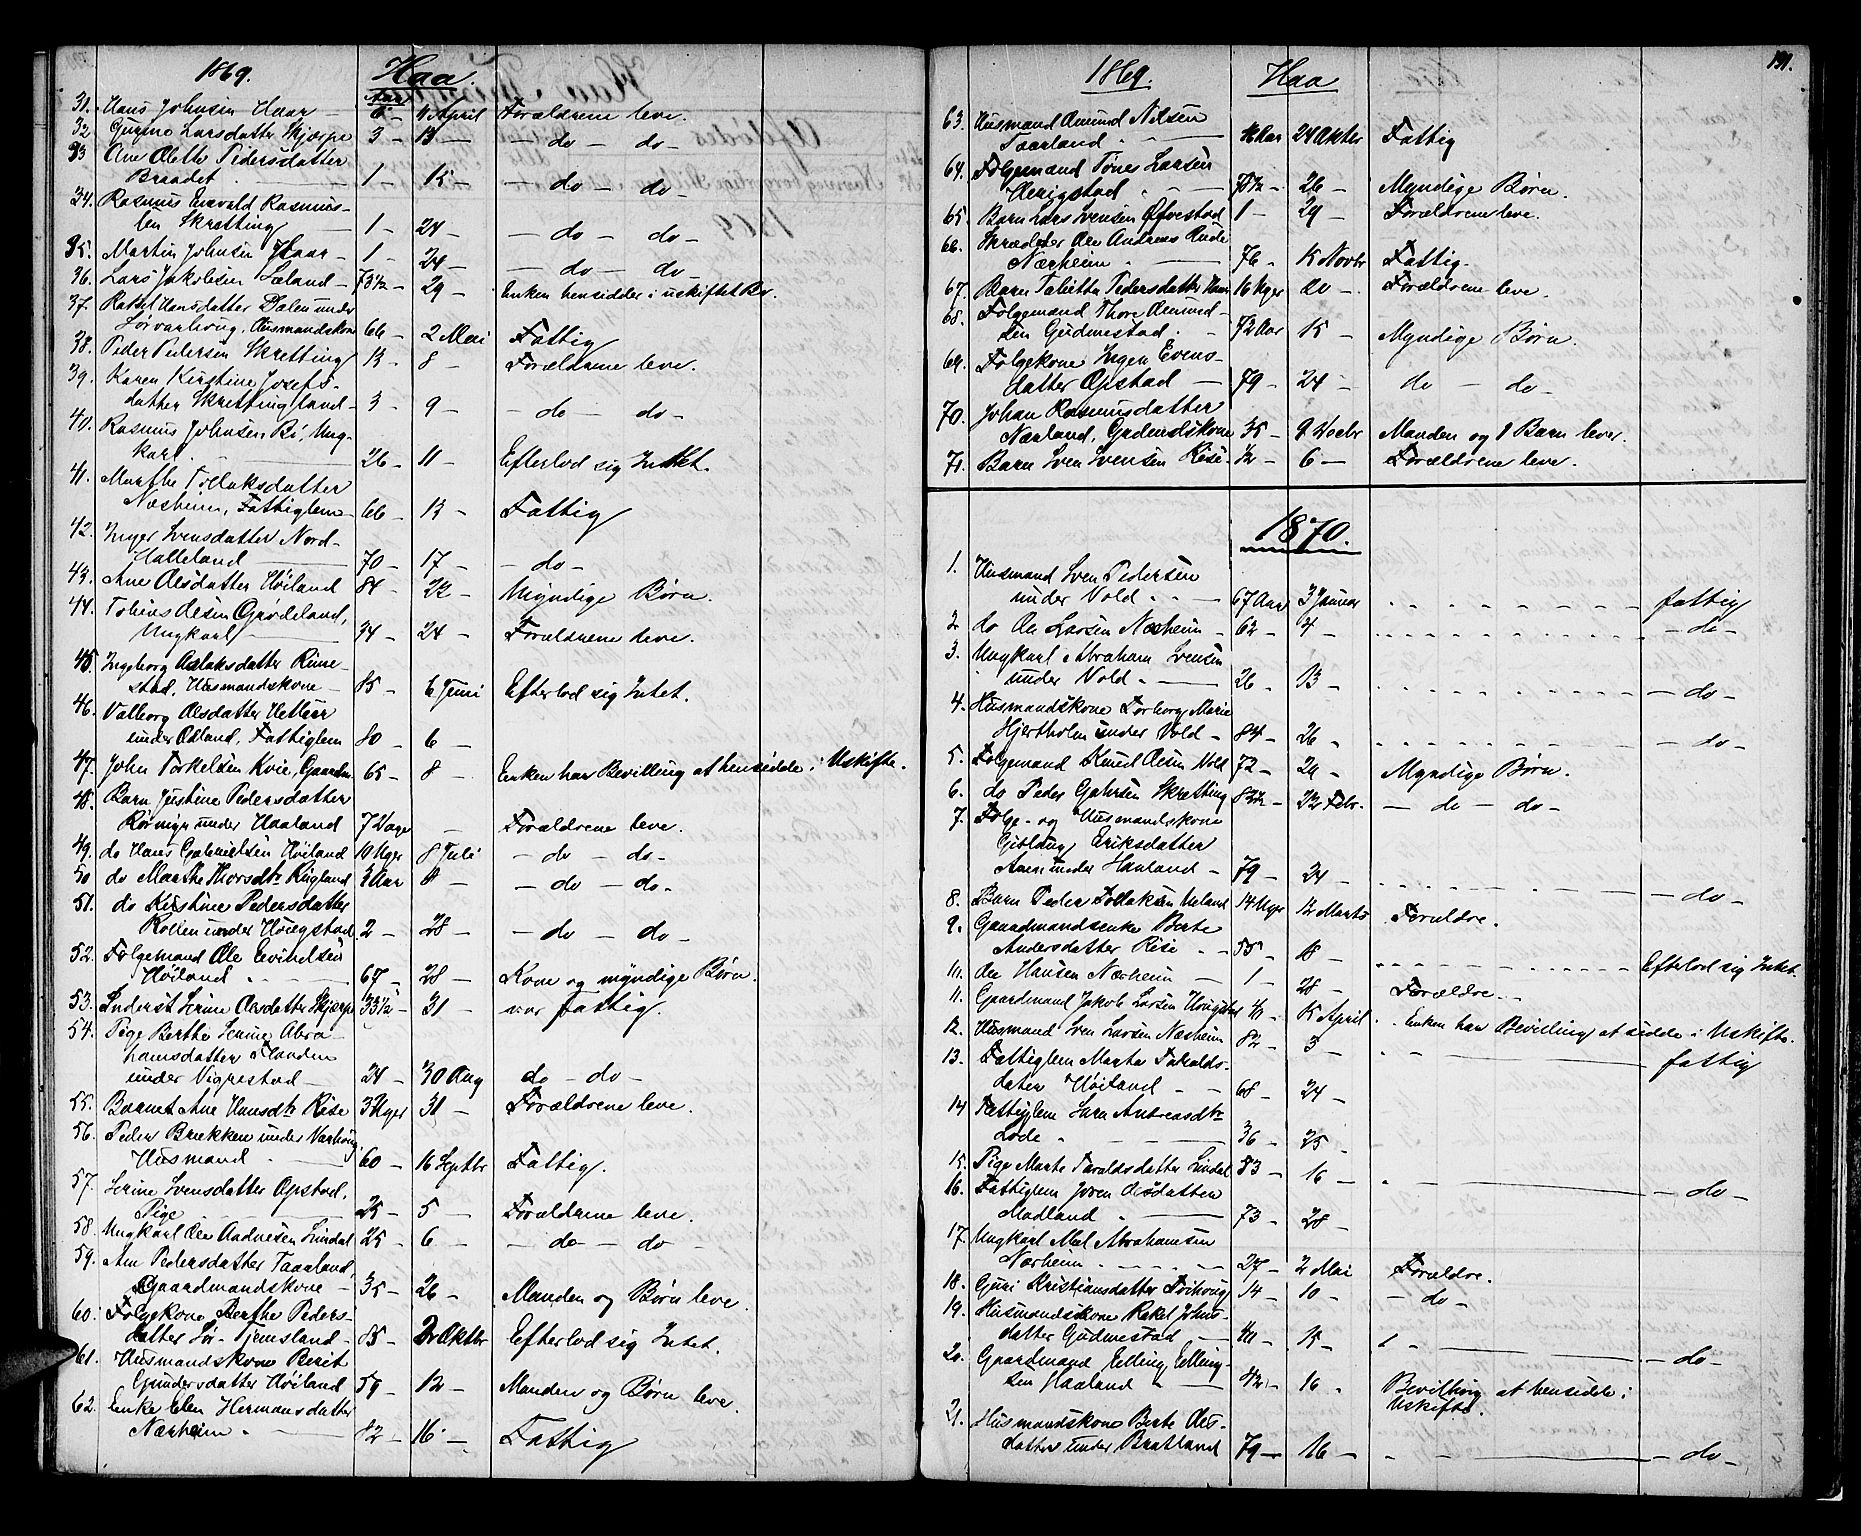 1869. Haa.
Aar
31. Hans Johnsen Haar — 6 — 11 April Forældrene leve.
32 Gunno Larsdatter Skjærpe 3 — 13 — — do — do —
33 Ane Olette Pedersdatter
Braadet 1 — 15 — — do — do —
34. Rasmus Enevald Rasmus-
sen Skretting 1 — 24 — — do — do —
35. Martin Johnsen Haar — 1 — 24 — — do — do —
36. Lars Jakobsen Læland — 73½ — 29 — Enken hensidder i uskiftet Bo.
37. Rakel Hansdatter Dalen under
Sørvarhoug, Husmandskone 66 — 2 Mai Fattig
38. Peder Pedersen Skretting 13 — 8 — Forældrene leve.
39. Karen Kirstine Josefs-
datter Skrettingland — 3 — 9 — — do — do —
40. Rasmus Johnsen Bø, Ung-
karl. 26 — 11 — Efterlod sig Intet.
41. Marthe Tollaksdatter
Næsheim, Fattiglem — 66 — 13 — Fattig
42. Inger Svensdatter Nord-
Halleland 70 — 17 — — do —
43. Ane Olsdatter Høiland 84 — 22 — Myndige Børn.
44. Tobias Olsen Grødeland,
Ungkarl 34 — 24 — Forældrene leve.
45. Ingeborg Aslaksdatter Rime-
stad, Husmandskone — 85 — 6 Juni Efterlod sig Intet.
46. Valborg Olsdatter
under Odland, Fattiglem 80 — 6 —
47. John Torkelsen Kvie, Gaardm. 65 — 8 — Enken har Bevilling at hensidde i Uskifte.
48. Barn Justine Pedersdatter
under Haaland 7 Dage — Forældrene leve.
49. do Hans Gabrielsen Høiland 10 Uger 8 Juli — do — do —
50 do Marthe Thorsdtr Kugland 3 Aar 8 — — do — do —
51. do Kirstine Pedersdatter
under Hougstad. 2 — 28 — — do — do —
52. Følgemand Ole Evindsen
Høiland 67 — 28 — Kone og myndige Børn.
53. Inderst Serine Olsdatter Skjærpe 33½ — 31 — var fattig.
54. Pige Berthe Serine Abra-
hamsdatter
under Vigrestad — 24 — 30 Aug do — do —
55. Barnet Ane Hansdtr Risé 3 Uger 31 — Forældrene leve.
56. Peder Brækken under Varhoug,
Husmand 60 — 16 Septbr Fattig.
57. Serine Svensdatter Opstad,
Pige 25 — 5 — Forældrene leve.
58. Ungkarl Ole Aadnesen Lindal 25 — 6 — — do — do —
59. Ane Pedersdatter Taarland,
Gaardmandskone — 35 — 26 — Manden og Børn leve.
60. Følgekone Berthe Peders-
datter Sør-Tjemsland — 85 — 2 Oktbr Efterlod sig Intet.
61. Husmandskone Berit
Gundersdatter Høiland 59 — 12 — Manden og Børn leve.
62. Enke Elen Hermansdatter
Nærheim. 82 — 16 — Fattig
191.
1869. Haa
63. Husmand Omund Nilsen
Taarland Aar 24 Oktbr Fattig
64. Følgemand Tønes Larsen
Herigstad 78½ — 26 — Myndige Børn.
65. Barn Lars Svensen Øfrestad 1 — 29 — Forældrene leve.
66. Skrædder Ole Andreas Rude
Nærheim 76 — 15 Novbr Fattig.
67. Barn Talitta Pedersdatter Haar 16 Uger 20 — Forældrene leve.
68. Følgemand Thore Omund-
sen Gudmestad. 72 Aar 15 — Myndige Børn.
69. Følgekone Ingen Evens-
datter Opstad — 79 — 24 — do — do —
70. Johan Rasmusdatter
Nærland, Grdmdskone 35 — 9 Decbr Manden og 1 Barn lever.
71. Barn Sven Svensen Risé — ½ — 6 — Forældrene leve.
1870.
1. Husmand Sven Pedersen
under Vold 67 Aar 3 Januar fattig
2. do Ole Larsen Næsheim — 62 — 4 — — do —
3. Ungkarl Abraham Svensen
under Vold. 26 — 13 — — do —
4. Husmandskone Torborg Marie
Hjertholm under Vold — 84 — 26 — — do —
5. Følgemand Knud Olsen Vold 72 — 29 — Myndige Børn.
6. do Peder Skretting 82½ — 22 Febr. — do — do —
7. Følge- og Husmandskone
Eriksdatter
under Haaland — 79 — 24 — — do —
8. Barn Peder Tollaksen Ueland 14 Uger 12 Marts Forældre.
9. Gaardmandsenke Berte
Andersdatter Risé 55 — 18 — Efterlod sig Intet.
11. Ole Hansen Nærheim — 1 — 28 — Forældre.
11. Gaardmand Jakob Larsen Hougstad 41 — 15 April Enken har Bevilling at sidde i Uskifte.
12. Husmand Sven Larsen Næsheim 82 — 3 — fattig
13. Fattiglem Marta Taralds-
datter Høiland 68 — 24 —
14 Fattiglem Sara Andreasdtr
Lode 36 — 25 —
15. Pige Marte Taraldsdatter Lindal 53 — 16 —
16. Fattiglem Joren Olsdatter
Madland. 73 — 28 — — do —
17. Ungkarl Mal Abrahamsen
Nærheim 27 — 2 Mai Forældre.
18. Guri Kristiansdatter 14 — 10 — — do —
19. Husmandskone Rakel Johns-
datter Gudmestad — 40 — 15 — — do —
20. Gaardmand Elling Elling-
sen Haaland 42 — 16 Bevilling at hensidde i
Uskifte.
21. Husmandskone Berte Ols-
datter under Bratland 79 — 16 — — do —